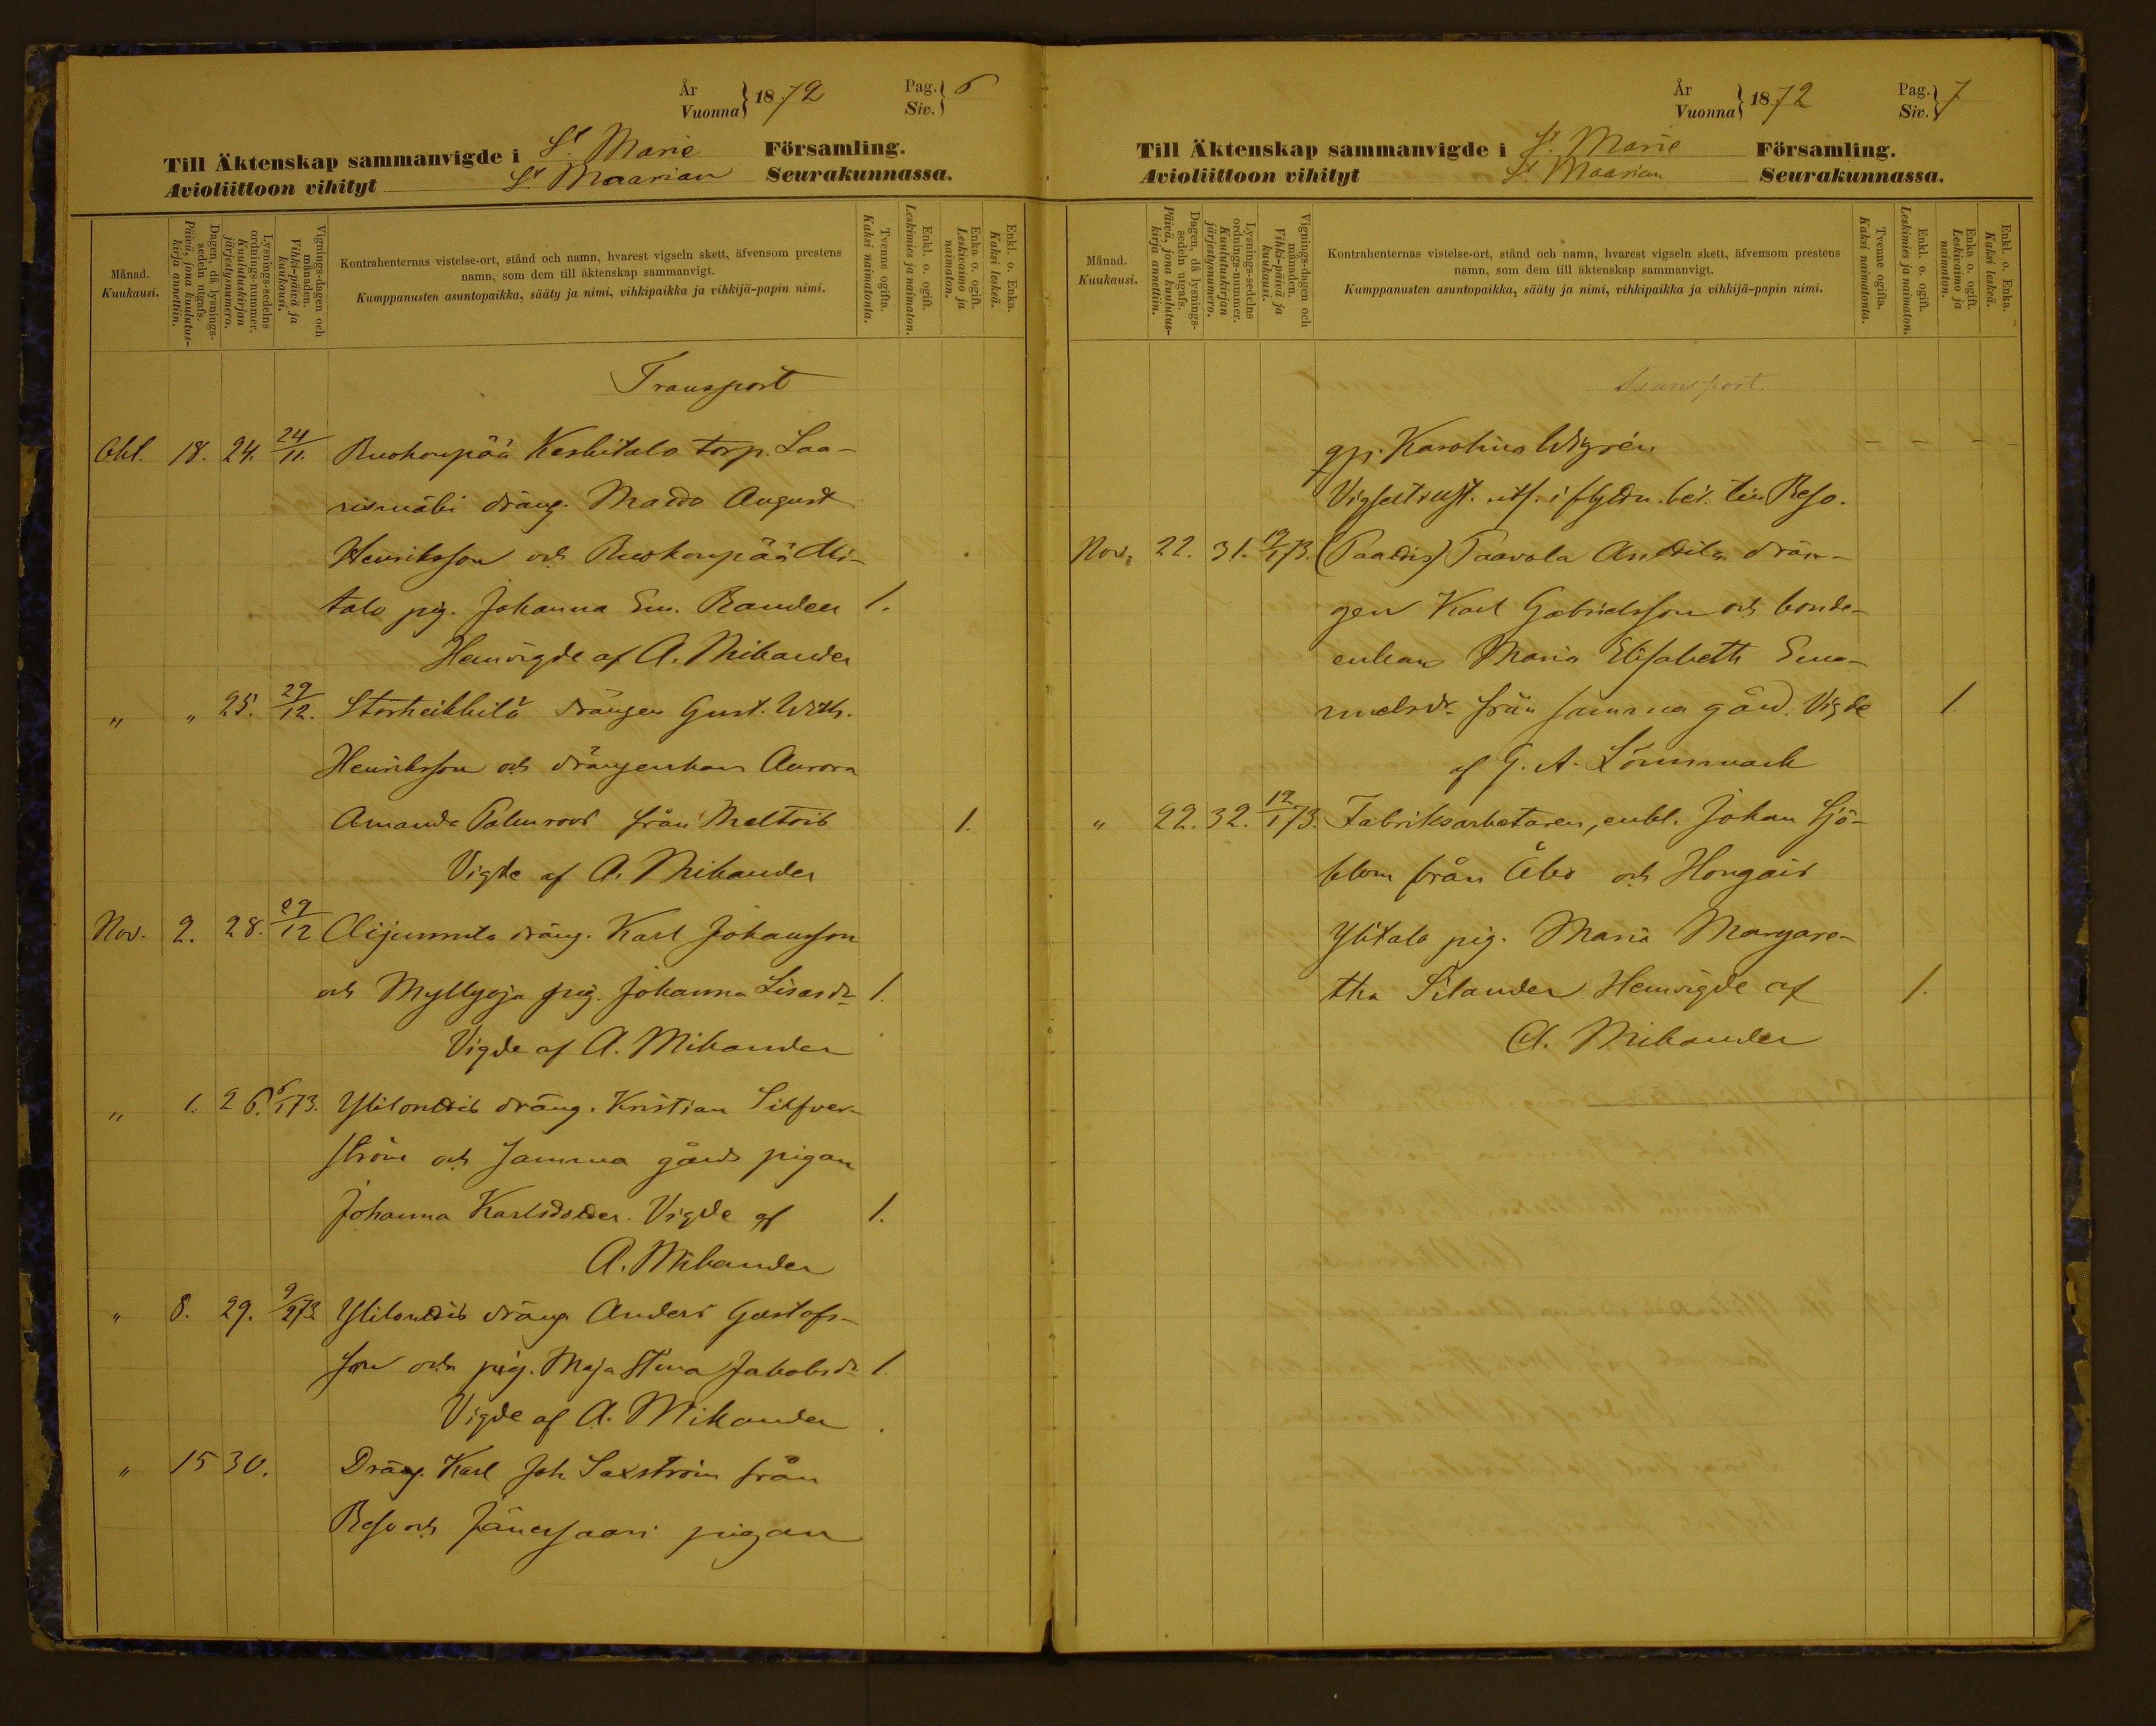 År
Vuonna } 1872 Pag.
Siv. } 6
Till Äktenskap sammanvigde i St Marie Församling.
Avioliittoon vihityt St Maarian Seurakunnassa.
Månad.
Kuukausi.
Dagen, då lysnings-
sedeln utgafs.
Päivä, jona kuulutus-
kirja annettiin.
Lysnings-sedelns
ordnings-nummer.
Kuulutuskirjan
järjestysnumero.
Vignings-dagen och
månaden.
Vihki-päivä ja
kuukausi.
Kontrahenternas vistelse-ort, stånd och namn, hvarest vigseln skett, äfvensom prestens
namn, som dem till äktenskap sammanvigt.
Kumppanusten asuntopaikka, sääty ja nimi, vihkipaikka ja vihkijä-papin nimi.
Tvenne ogifta.
Kaksi naimatonta.
Enkl. o. ogift.
Leskimies ja naimaton.
Enka o. ogift.
Leskivaimo ja
naimaton.
Enkl. o. Enka.
Kaksi leskeä.
Transport
Okt. 18. 24. 24/11. Ruohonpää Keskitalo torp. Laa-
rismäki dräng. August
Henriksson och Ruohonpää Ali-
talo pig. Johanna Em. Randen 1.
Hemvigde af A. Mikander
" " 25. 29/12. Storheikkilä drängen Gust. Wilh.
Henriksson och drängenkan Aurora
Amanda Palmroos från
1.
Vigde af A. Mikander
Nov. 2. 28. 29/12 Alijummta dräng. Karl Johansson
och Myllyoja pig. Johanna Lisasdr 1.
Vigde af A. Mikander
" 1. 26. 6/1 73. dräng. Kristian Silfver-
ström och samma gårds pigan
Johanna Karlsdotter. Vigde af 1.
A. Mikander
" 8. 29. 9/2 73 dräng Anders Gustafs-
son och pig. Maja Stina Jakobsdr 1
Vigde af A. Mikander
" 15 30. Dräng. Karl Joh. Saxström från
Reso och Jänessaari pigan
År
Vuonna } 1872 Pag.
Siv. } 7
Till Äktenskap sammanvigde i St Marie Församling.
Avioliittoon vihityt St Maarian Seurakunnassa.
Månad.
Kuukausi.
Dagen, då lysnings-
sedeln utgafs.
Päivä, jona kuulutus-
kirja annettiin.
Lysnings-sedelns
ordnings-nummer.
Kuulutuskirjan
järjestysnumero.
Vignings-dagen och
månaden.
Vihki-päivä ja
kuukausi.
Kontrahenternas vistelse-ort, stånd och namn, hvarest vigseln skett, äfvensom prestens
namn, som dem till äktenskap sammanvigt.
Kumppanusten asuntopaikka, sääty ja nimi, vihkipaikka ja vihkijä-papin nimi.
Tvenne ogifta.
Kaksi naimatonta.
Enkl. o. ogift.
Leskimies ja naimaton.
Enka o. ogift.
Leskivaimo ja
naimaton.
Enkl. o. Enka.
Kaksi leskeä.
transport.
Karolina Wigrén - - - -
utf. i till Reso.
Nov. 22. 31. 19/1 73. (Paattis) Paavola Anttila drän-
gen Karl Gabrielsson och bonde-
enkan Maria Elisabeth Ema-
nuelsdr från samma gård. Vigde 1
af G. A. Lönnmark
" 22. 32. 12/1 73. Fabriksarbetaren, enkl. Johan Sjö-
blom från Åbo och
Ylitalo pig. Maria Margare-
tha Silander Hemvigde af 1.
A. Mikander